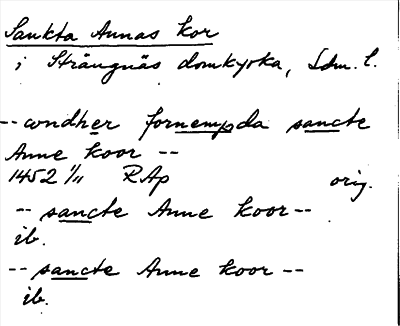 Sankta Annas kor
i Strängnäs domkyrka, Sdm. l.
-- wndher fornempda sancte
Anne koor --
1452 1/11 RAp orig.
-- sancte Anne koor --
ib.
-- sancte Anne koor --
ib.